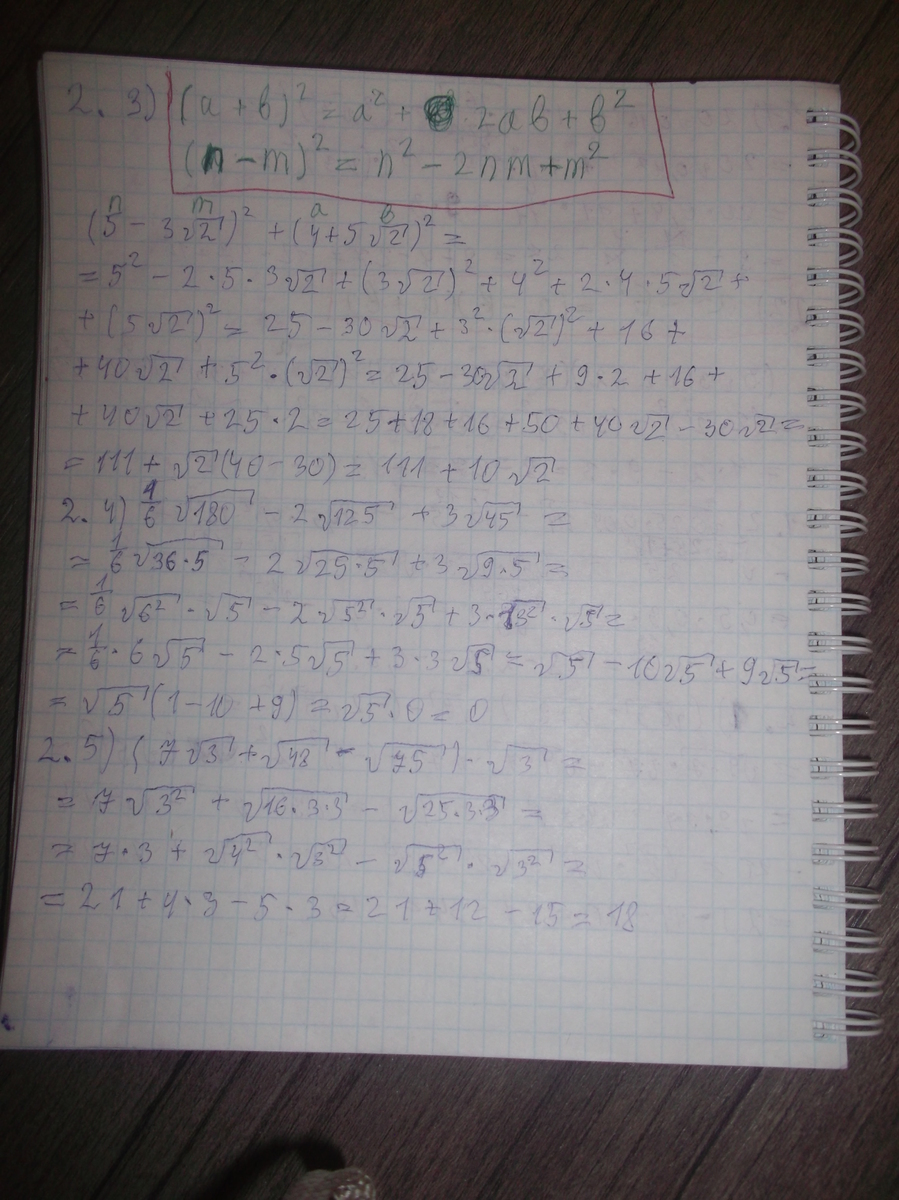 2. 3) (a + b)² = a² + 2ab + b²
(n - m)² = n² - 2nm + m²
n m a b
(5 - 3√2)² + (4 + 5√2)² =
= 5² - 2·5·3√2 + (3√2)² + 4² + 2·4·5√2 +
+ (5√2)² = 25 - 30√2 + 3²·(√2)² + 16 +
+ 40√2 + 5²·(√2)² = 25 - 30√2 + 9·2 + 16 +
+ 40√2 + 25·2 = 25 + 18 + 16 + 50 + 40√2 - 30√2 =
= 111 + √2(40 - 30) = 111 + 10√2
2. 4) 1/6 √180 - 2√125 + 3√45 =
= 1/6 √36·5 - 2√25·5 + 3√9·5 =
= 1/6 √6² · √5 - 2√5² · √5 + 3·√3² · √5 =
= 1/6 · 6√5 - 2·5√5 + 3·3√5 = √5 - 10√5 + 9√5 =
= √5(1 - 10 + 9) = √5·0 = 0
2. 5) (7√3 + √48 - √75) · √3 =
= 7√3² + √16·3·3 - √25·3·3 =
= 7·3 + √4² · √3² - √5² · √3² =
= 21 + 4·3 - 5·3 = 21 + 12 - 15 = 18